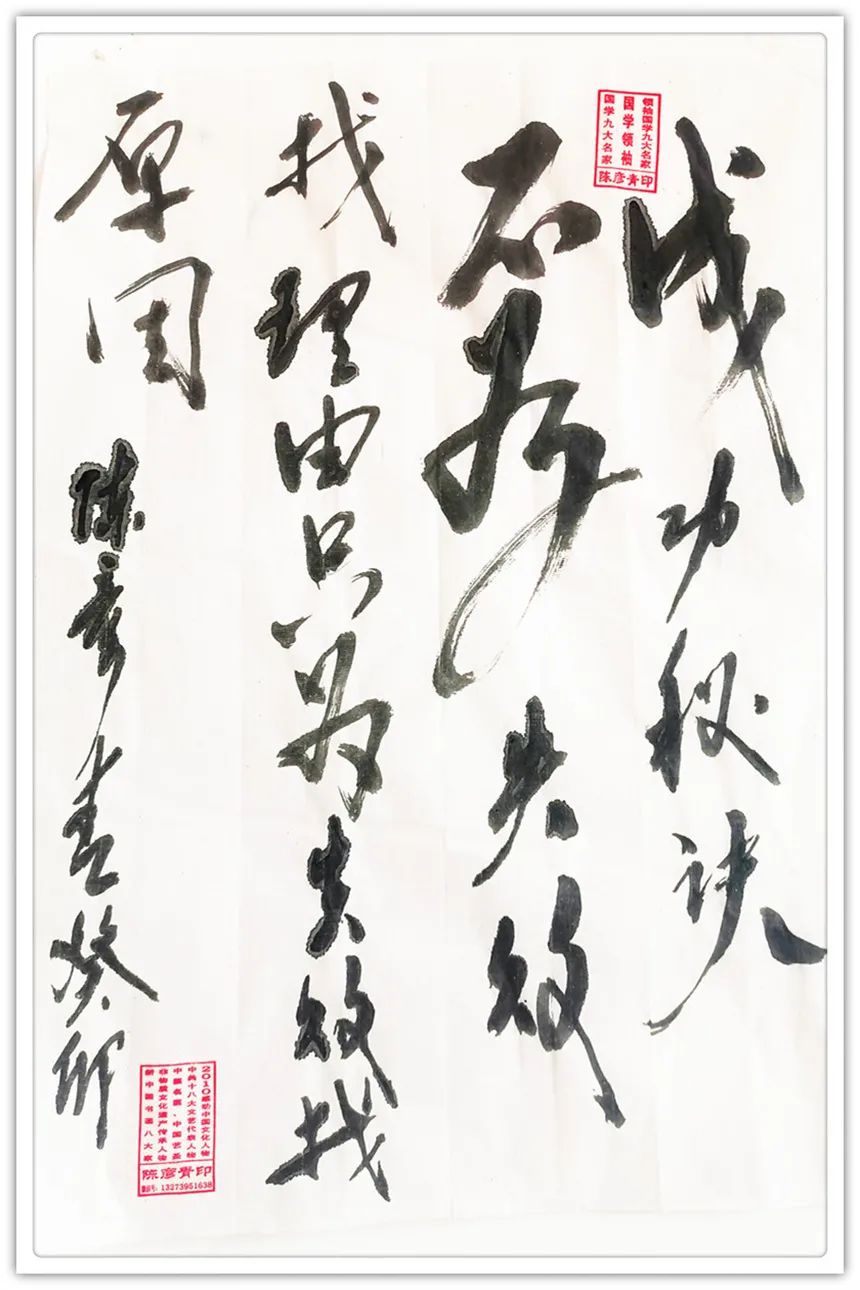 成功秘诀
不为失败
找理由只为失败找
原因
陈彦青癸卯
领袖国学九大名家
国学领袖
国学九大名家
陈彦青印
2010感动中国文化人物
中共十八大文艺代表人物
中国名家·中国艺圣
非物质文化遗产传承人物
新中国书画八大家
陈彦青印
13273951638